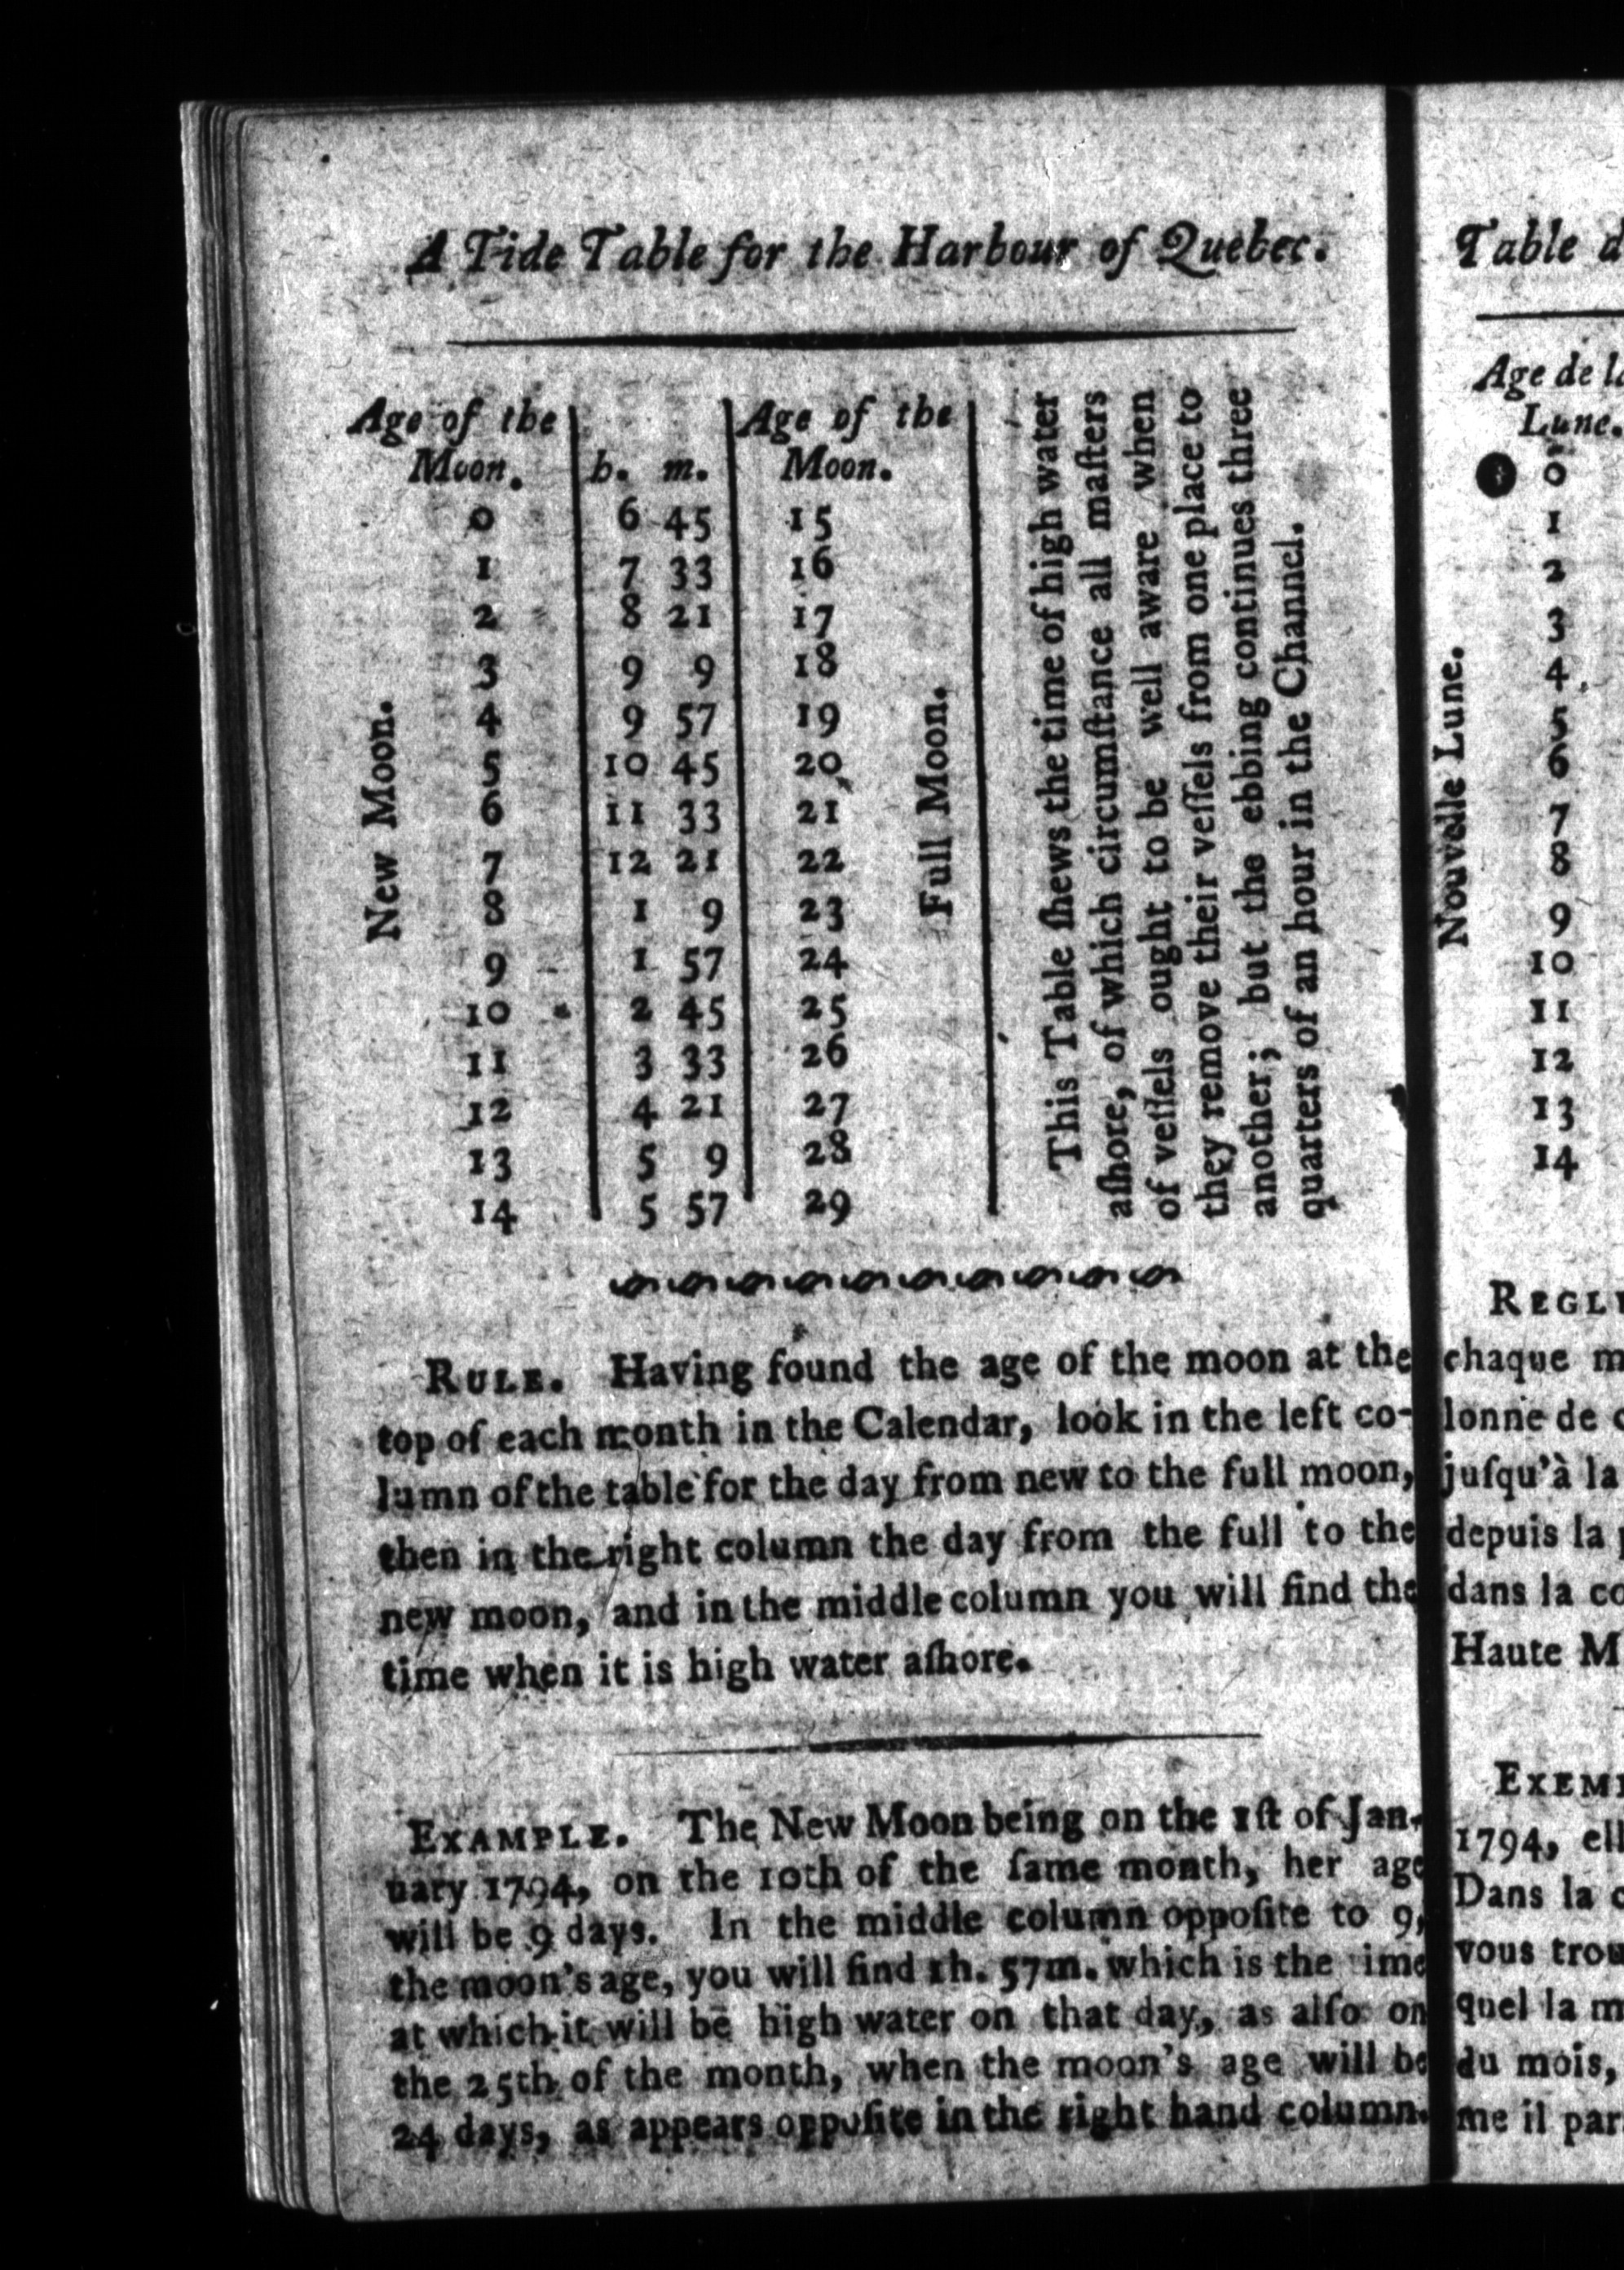 A Tide Table for the Harbour of Quebec.
Age of the Moon. h. m. Age of the Moon.
New Moon.
0 6 45 15
1 7 33 16
2 8 21 17
3 9 9 18
4 9 57 19
5 10 45 20
6 11 33 21
7 12 21 22
8 1 9 23
9 1 57 24
10 2 45 25
11 3 33 26
12 4 21 27
13 5 9 28
14 5 57 29
Full Moon.
This Table ſhews the time of high water
aſhore, of which circumſtance all maſters
of veſſels ought to be well aware when
they remove their veſſels from one place to
another; but the ebbing continues three
quarters of an hour in the Channel.
RULE. Having found the age of the moon at the
top of each month in the Calendar, look in the left co-
lumn of the table for the day from new to the full moon,
then in the right column the day from the full to the
new moon, and in the middle column you will find the
time when it is high water aſhore.
EXAMPLE. The New Moon being on the 1ſt of Jan-
uary 1794, on the 10th of the ſame month, her age
will be 9 days. In the middle column oppoſite to 9,
the moon's age, you will find 1h. 57m. which is the ime
at which it will be high water on that day, as alſo on
the 25th of the month, when the moon's age will be
24 days, as appears oppoſite in the right hand column.
Table d
Age de la
Lune.
Nouvelle Lune.
0
1
2
3
4
5
6
7
8
9
10
11
12
13
14
REGLE
chaque m
lonne de
juſqu'à la
depuis la
dans la co
Haute M
EXEM
1794, ell
Dans la
vous trou
quel la m
du mois,
me il par